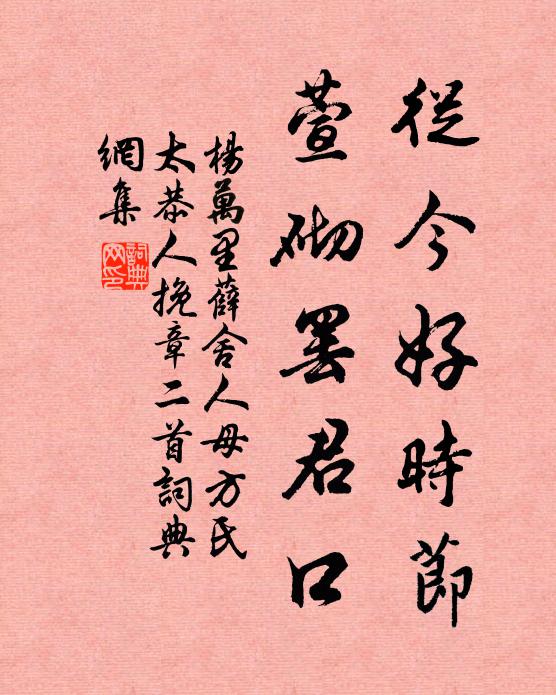 從今好時節
萱砌罢君口
楊萬里薛舍人母方氏
太恭人挽章二首詞典
網集
詞典網印